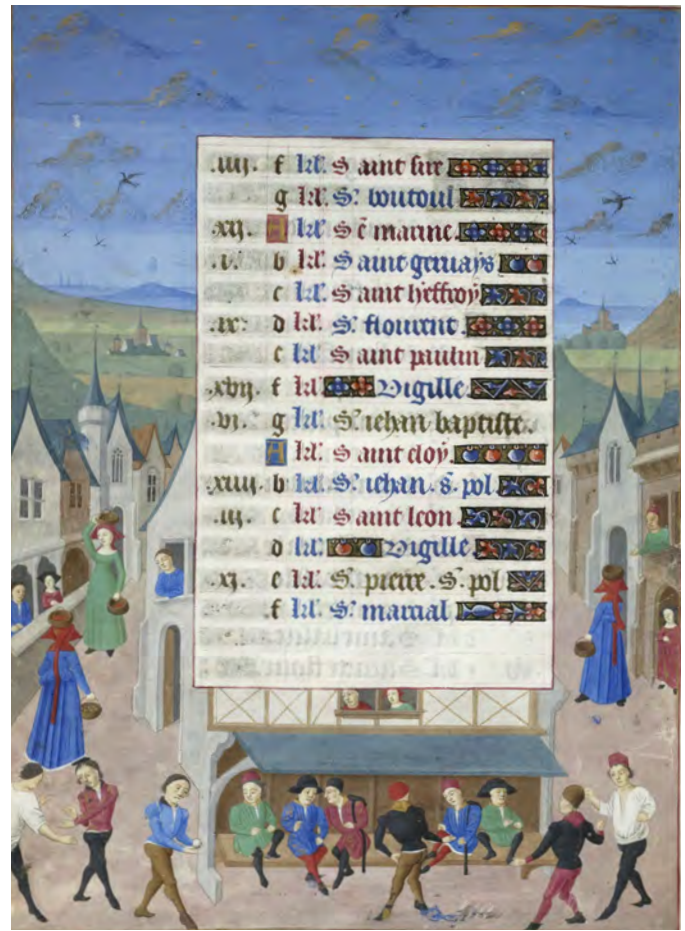 .iiij. f kl'. Saint sire
g kl'. S'. boutoul
.xij. A kl'. S'e marine.
.i. b kl'. Saint geruays
c kl'. Saint heffroy
.ix. d kl'. S'. flourent
e kl'. Saint paulin
.xvij. f kl'. Vigille.
.vj. g kl'. S'. iehan baptiste.
A kl'. Saint eloy.
.xiiij. b kl'. S'. iehan .s'. pol
.iij. c kl'. Saint leon
d kl'. Vigille.
.xj. e kl'. S'. pierre. S'. pol
f kl'. S'. marcial